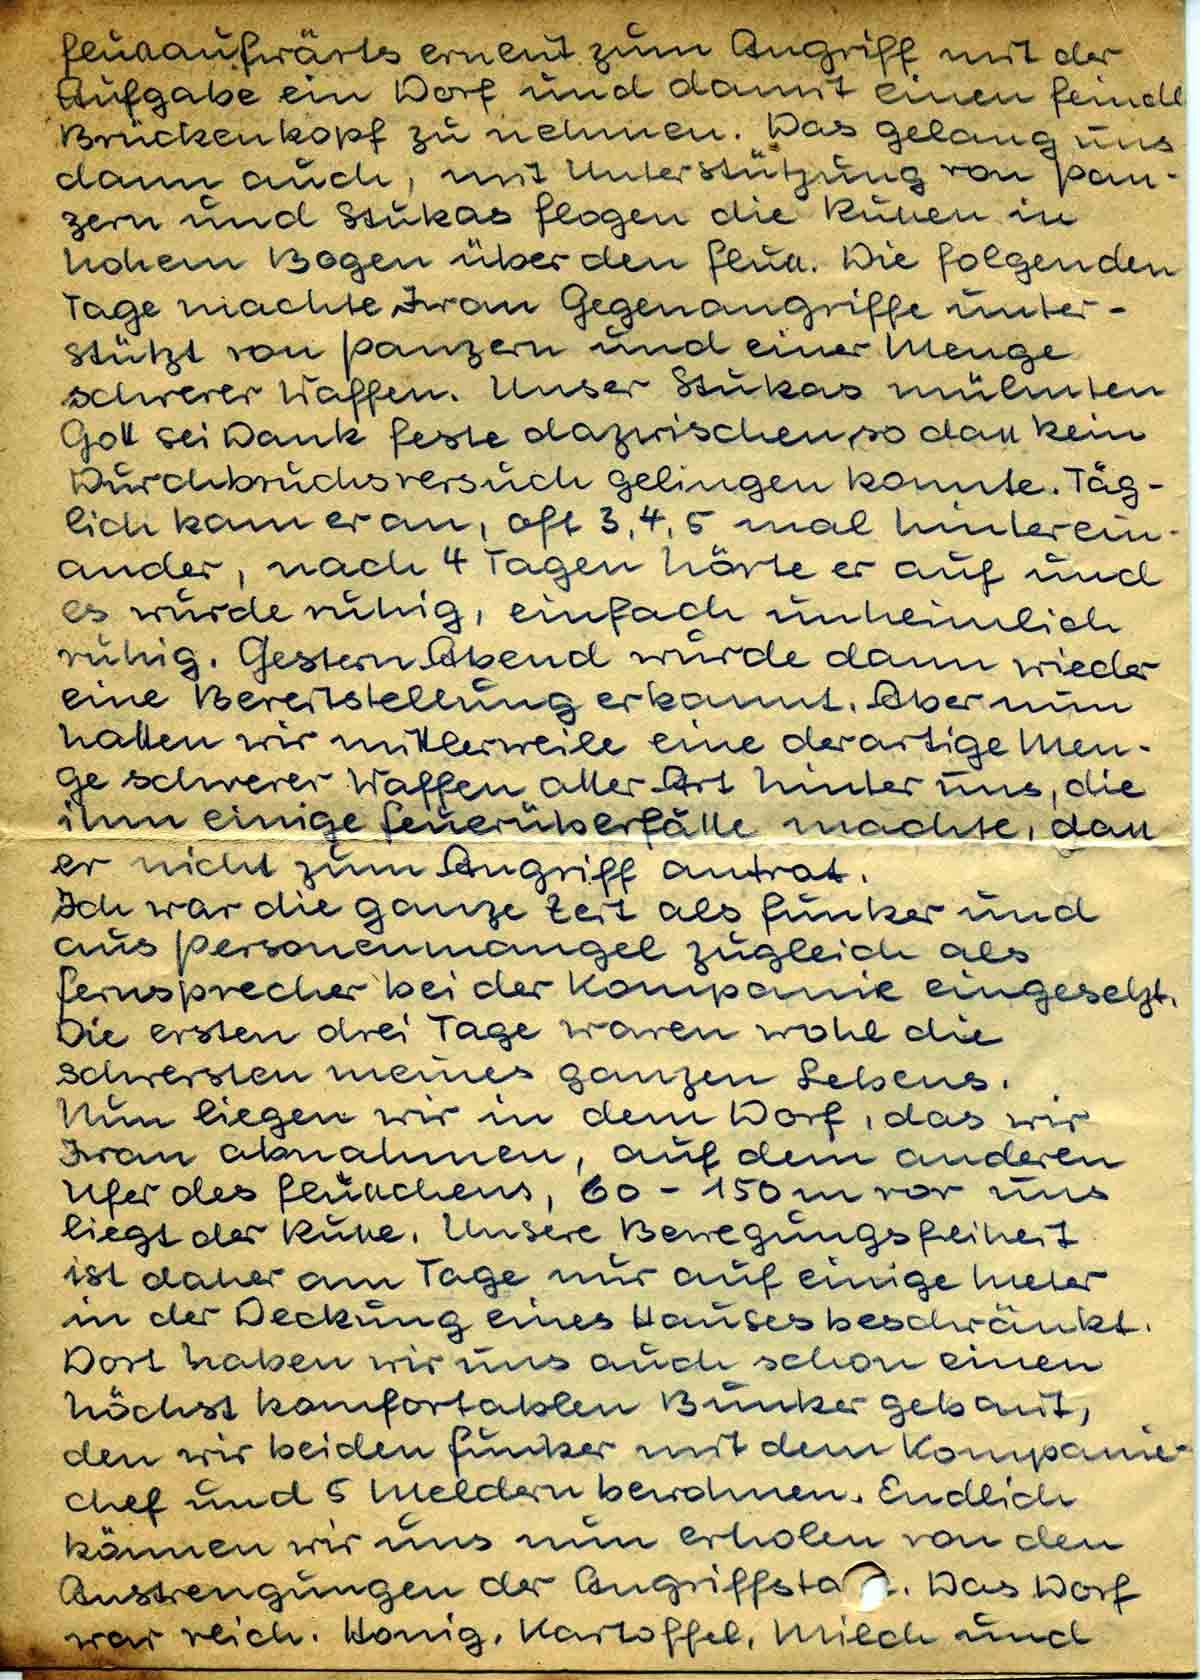 flußaufwärts erneut zum Angriff mit der
Aufgabe ein Dorf und damit einen feindl
Brückenkopf zu nehmen. Das gelang uns
dann auch, mit Unterstützung von Pan-
zern und Stukas flogen die Russen in
hohem Bogen über den Fluß. Die folgenden
Tage machte Iwan Gegenangriffe unter-
stützt von Panzern und einer Menge
schwerer Waffen. Unser Stukas mülmten
Gott sei Dank feste dazwischen, so daß kein
Durchbruchsversuch gelingen konnte. Täg-
lich kam er an, oft 3, 4, 5 mal hinterein-
ander, nach 4 Tagen hörte er auf und
es wurde ruhig, einfach unheimlich
ruhig. Gestern Abend wurde dann wieder
eine Bereitstellung erkannt. Aber nun
hatten wir mittlerweile eine derartige Men-
ge schwerer Waffen aller Art hinter uns, die
ihm einige Feuerüberfälle machte, daß
er nicht zum Angriff antrat.
Ich war die ganze Zeit als Funker und
aus Personenmangel zugleich als
Fernsprecher bei der Kompanie eingesetzt.
Die ersten drei Tage waren wohl die
schwersten meines ganzen Lebens.
Nun liegen wir in dem Dorf, das wir
Iwan abnahmen, auf dem anderen
Ufer des Flußchens, 60 - 150 m vor uns
liegt der Russe. Unsere Bewegungsfreiheit
ist daher am Tage nur auf einige Meter
in der Deckung eines Hauses beschränkt.
Dort haben wir uns auch schon einen
höchst komfortablen Bunker gebaut,
den wir beiden Funker mit dem Kompanie-
chef und 5 Meldern bewohnen. Endlich
können wir uns nun erholen von den
Anstrengungen der Angriffsta. Das Dorf
war reich. Honig, Kartoffel, Milch und